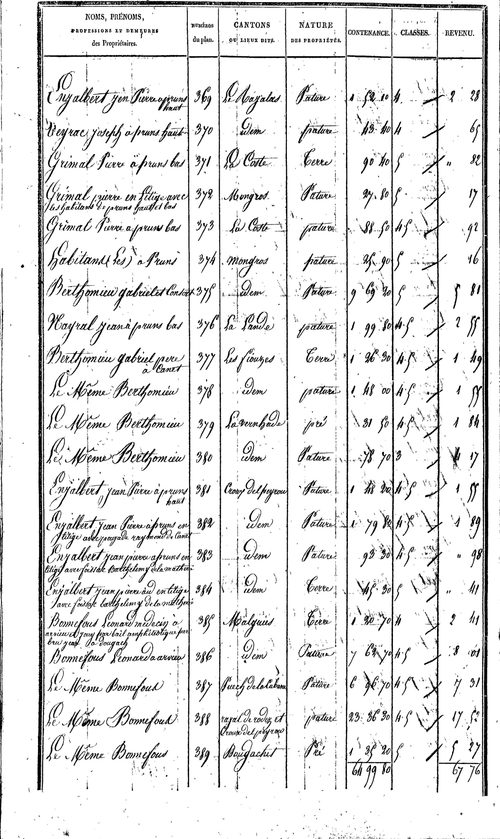 NOMS, PRÉNOMS, PROFESSIONS ET DEMEURES des Propriétaires. NUMÉROS du plan. CANTONS OU LIEUX DITS. NATURE DES PROPRIÉTÉS. CONTENANCE. CLASSES. REVENU.
Enjalbert jean Pierre à pruns haut 369 Pature 1 52 10 4 2 28
Veyrac joseph à pruns haut 370 idem pature 43 40 4 65
Grimal Pierre à pruns bas 371 La Coste Terre 90 40 5 " 82
Grimal pierre en litige avec les habitans de pruns haut et bas 372 Mongros Pature 27 80 5 17
Grimal Pierre à pruns bas 373 La Coste pature 88 50 4 5 92
Habitans (Les) à Pruns 374 mongros pature 25 90 5 16
Berthomieu gabriel et 375 idem Pature 9 69 20 5 5 81
Nayral jean à pruns bas 376 La Lande pature 1 99 80 4 5 2 55
Berthomieu gabriel pere à Canet 377 Les fiouzes Terre 1 26 30 4 5 1 49
Le Même Berthomieu 378 idem pature 1 48 00 4 5 1 55
Le Même Berthomieu 379 Lavernhade pré 31 50 4 5 1 84
Le Même Berthomieu 380 idem Pature 78 70 3 4 17
Enjalbert jean Pierre à pruns haut 381 Croux del peyrou Pature 1 48 20 4 5 1 55
Enjalbert jean Pierre à pruns en litige avec raymond de Canet 382 idem Pature 1 79 4 5 1 89
Enjalbert jean pierre à pruns en litige avec Barthelemy de la 383 idem Pature 93 30 4 5 " 98
Enjalbert jean pierre en litige avec Barthelemy de la 384 idem Terre 45 30 5 " 41
Bonnefous Leonard medecin à arvieu par bail amphitéotique par 385 Malguiés Terre 1 30 70 4 2 41
Bonnefous Leonard à arvieu 386 idem Pature 7 63 70 4 8 01
Le Même Bonnefous 387 Puech de la Cabane Pature 6 96 70 4 5 7 31
Le Même Bonnefous 388 razal de rodez et Croux del peyrou pature 23 36 30 4 5 17 52
Le Même Bonnefous 389 Bougachet Pré 1 35 20 5 5 27
64 99 80 67 76